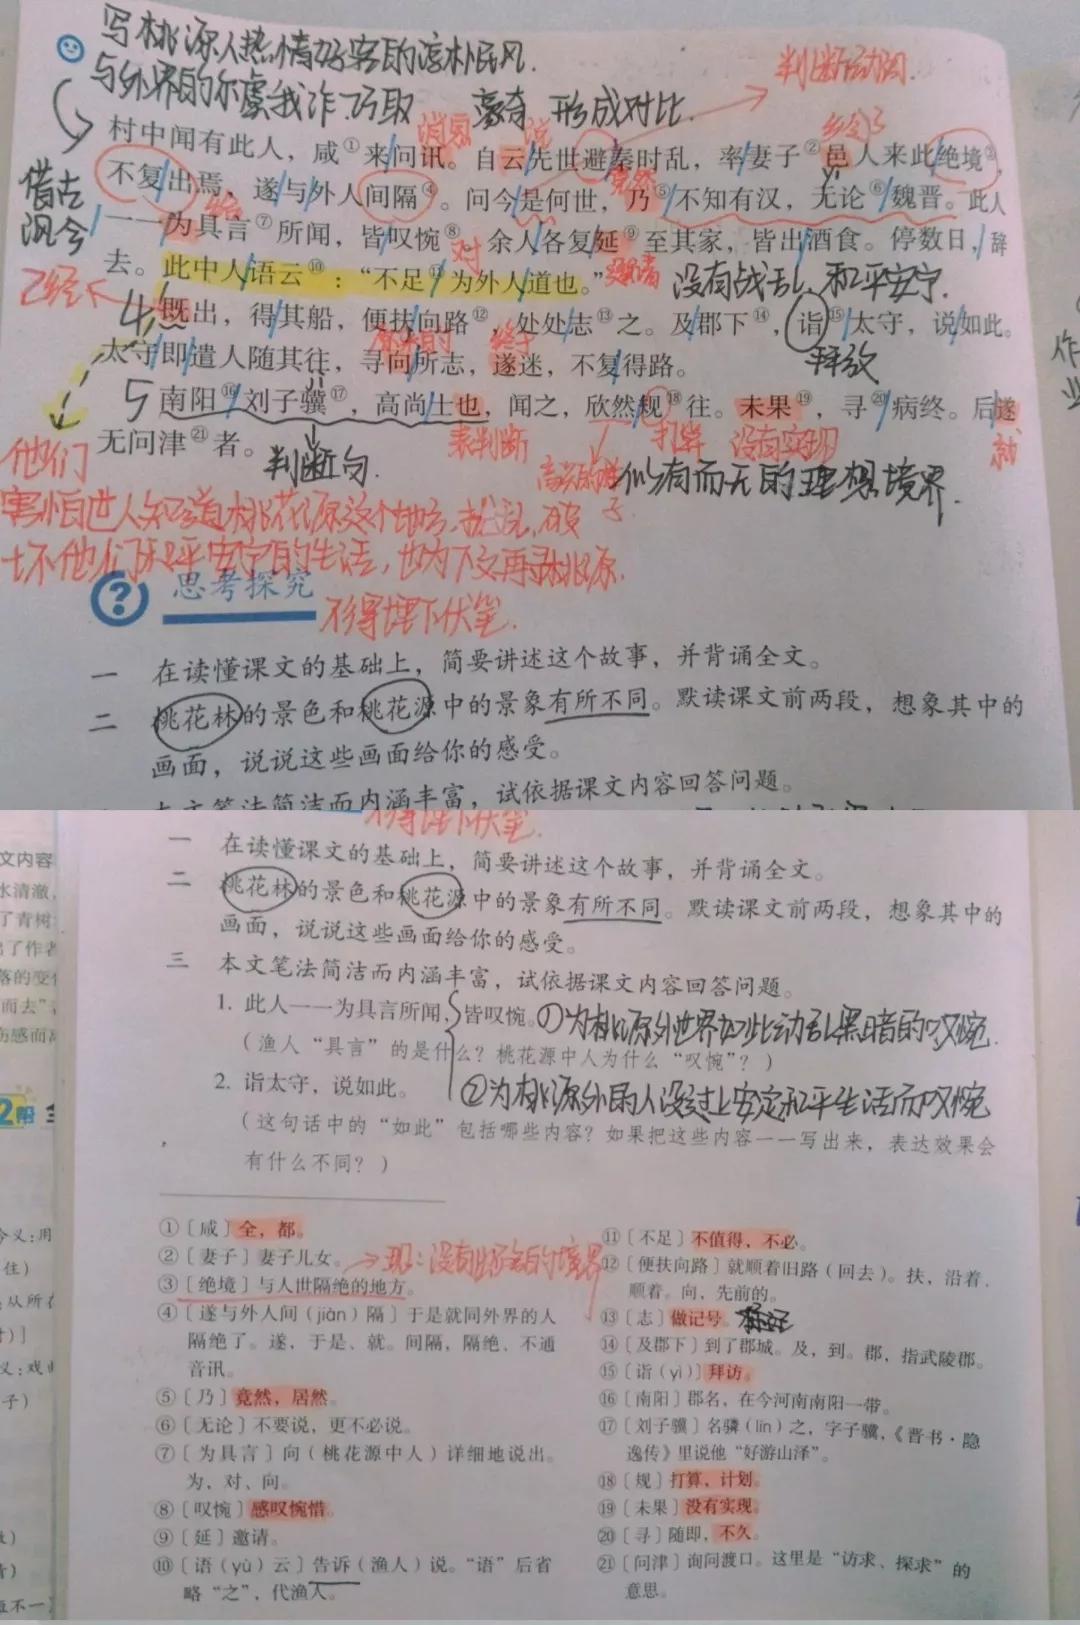 写桃源人热情好客的淳朴民风.
与外界的尔虞我诈巧取豪夺 形成对比.
判断动词.
村中闻有此人，咸①来问讯。自云先世避秦时乱，率妻子②邑人来此绝境③，
不复出焉，遂与外人间隔④。问今是何世，乃⑤不知有汉，无论⑥魏晋。此人
竟然
借古
讽今
一一为具言⑦所闻，皆叹惋⑧。余人各复延⑨至其家，皆出酒食。停数日，辞
对
去。此中人语云⑩：“不足⑪为外人道也。”
没有战乱、和平安宁.
4
既出，得其船，便扶向路⑫，处处志⑬之。及郡下⑭，诣⑮太守，说如此。
太守即遣人随其往，寻向所志，遂迷，不复得路。
5
南阳⑯刘子骥⑰，高尚士也，闻之，欣然规⑱往。未果⑲，寻⑳病终。后遂
表判断
打算
没有实现
就
无问津㉑者。
判断句.
似有而无的理想境界.
他们
害怕世人知道桃花源这个地方,
坏他们和平安宁的生活，也为下文再寻桃源
不得埋下伏笔.
思考探究
一 在读懂课文的基础上，简要讲述这个故事，并背诵全文。
二 桃花林的景色和桃花源中的景象有所不同。默读课文前两段，想象其中的
画面，说说这些画面给你的感受。
本文笔法简洁而内涵丰富，试依据课文内容回答问题。
不得埋下伏笔.
一 在读懂课文的基础上，简要讲述这个故事，并背诵全文。
二 桃花林的景色和桃花源中的景象有所不同。默读课文前两段，想象其中的
画面，说说这些画面给你的感受。
三 本文笔法简洁而内涵丰富，试依据课文内容回答问题。
1. 此人一一为具言所闻，皆叹惋。
①为桃源外世界如此动乱黑暗的叹惋.
（渔人“具言”的是什么？桃花源中人为什么“叹惋”？）
2. 诣太守，说如此。
②为桃源外的人没过上安定和平生活而叹惋
（这句话中的“如此”包括哪些内容？如果把这些内容一一写出来，表达效果会
有什么不同？）
①〔咸〕全，都。
②〔妻子〕妻子儿女。
③〔绝境〕与人世隔绝的地方。
④〔遂与外人间（jiàn）隔〕于是就同外界的人
隔绝了。遂，于是、就。间隔，隔绝、不通
音讯。
⑤〔乃〕竟然，居然。
⑥〔无论〕不要说，更不必说。
⑦〔为具言〕向（桃花源中人）详细地说出。
为，对、向。
⑧〔叹惋〕感叹惋惜。
⑨〔延〕邀请。
⑩〔语（yù）云〕告诉（渔人）说。“语”后省
略“之”，代渔人。
⑪〔不足〕不值得，不必。
⑫〔便扶向路〕就顺着旧路（回去）。扶，沿着、
顺着。向，先前的。
⑬〔志〕做记号。
⑭〔及郡下〕到了郡城。及，到。郡，指武陵郡。
⑮〔诣（yì）〕拜访。
⑯〔南阳〕郡名，在今河南南阳一带。
⑰〔刘子骥〕名驎（lín）之，字子骥，《晋书·隐
逸传》里说他“好游山泽”。
⑱〔规〕打算，计划。
⑲〔未果〕没有实现。
⑳〔寻〕随即，不久。
㉑〔问津〕询问渡口。这里是“访求、探求”的
意思。